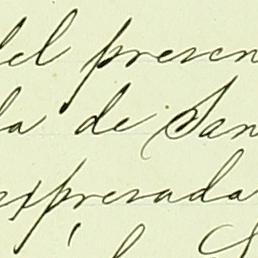 del presen
la de San
expresada